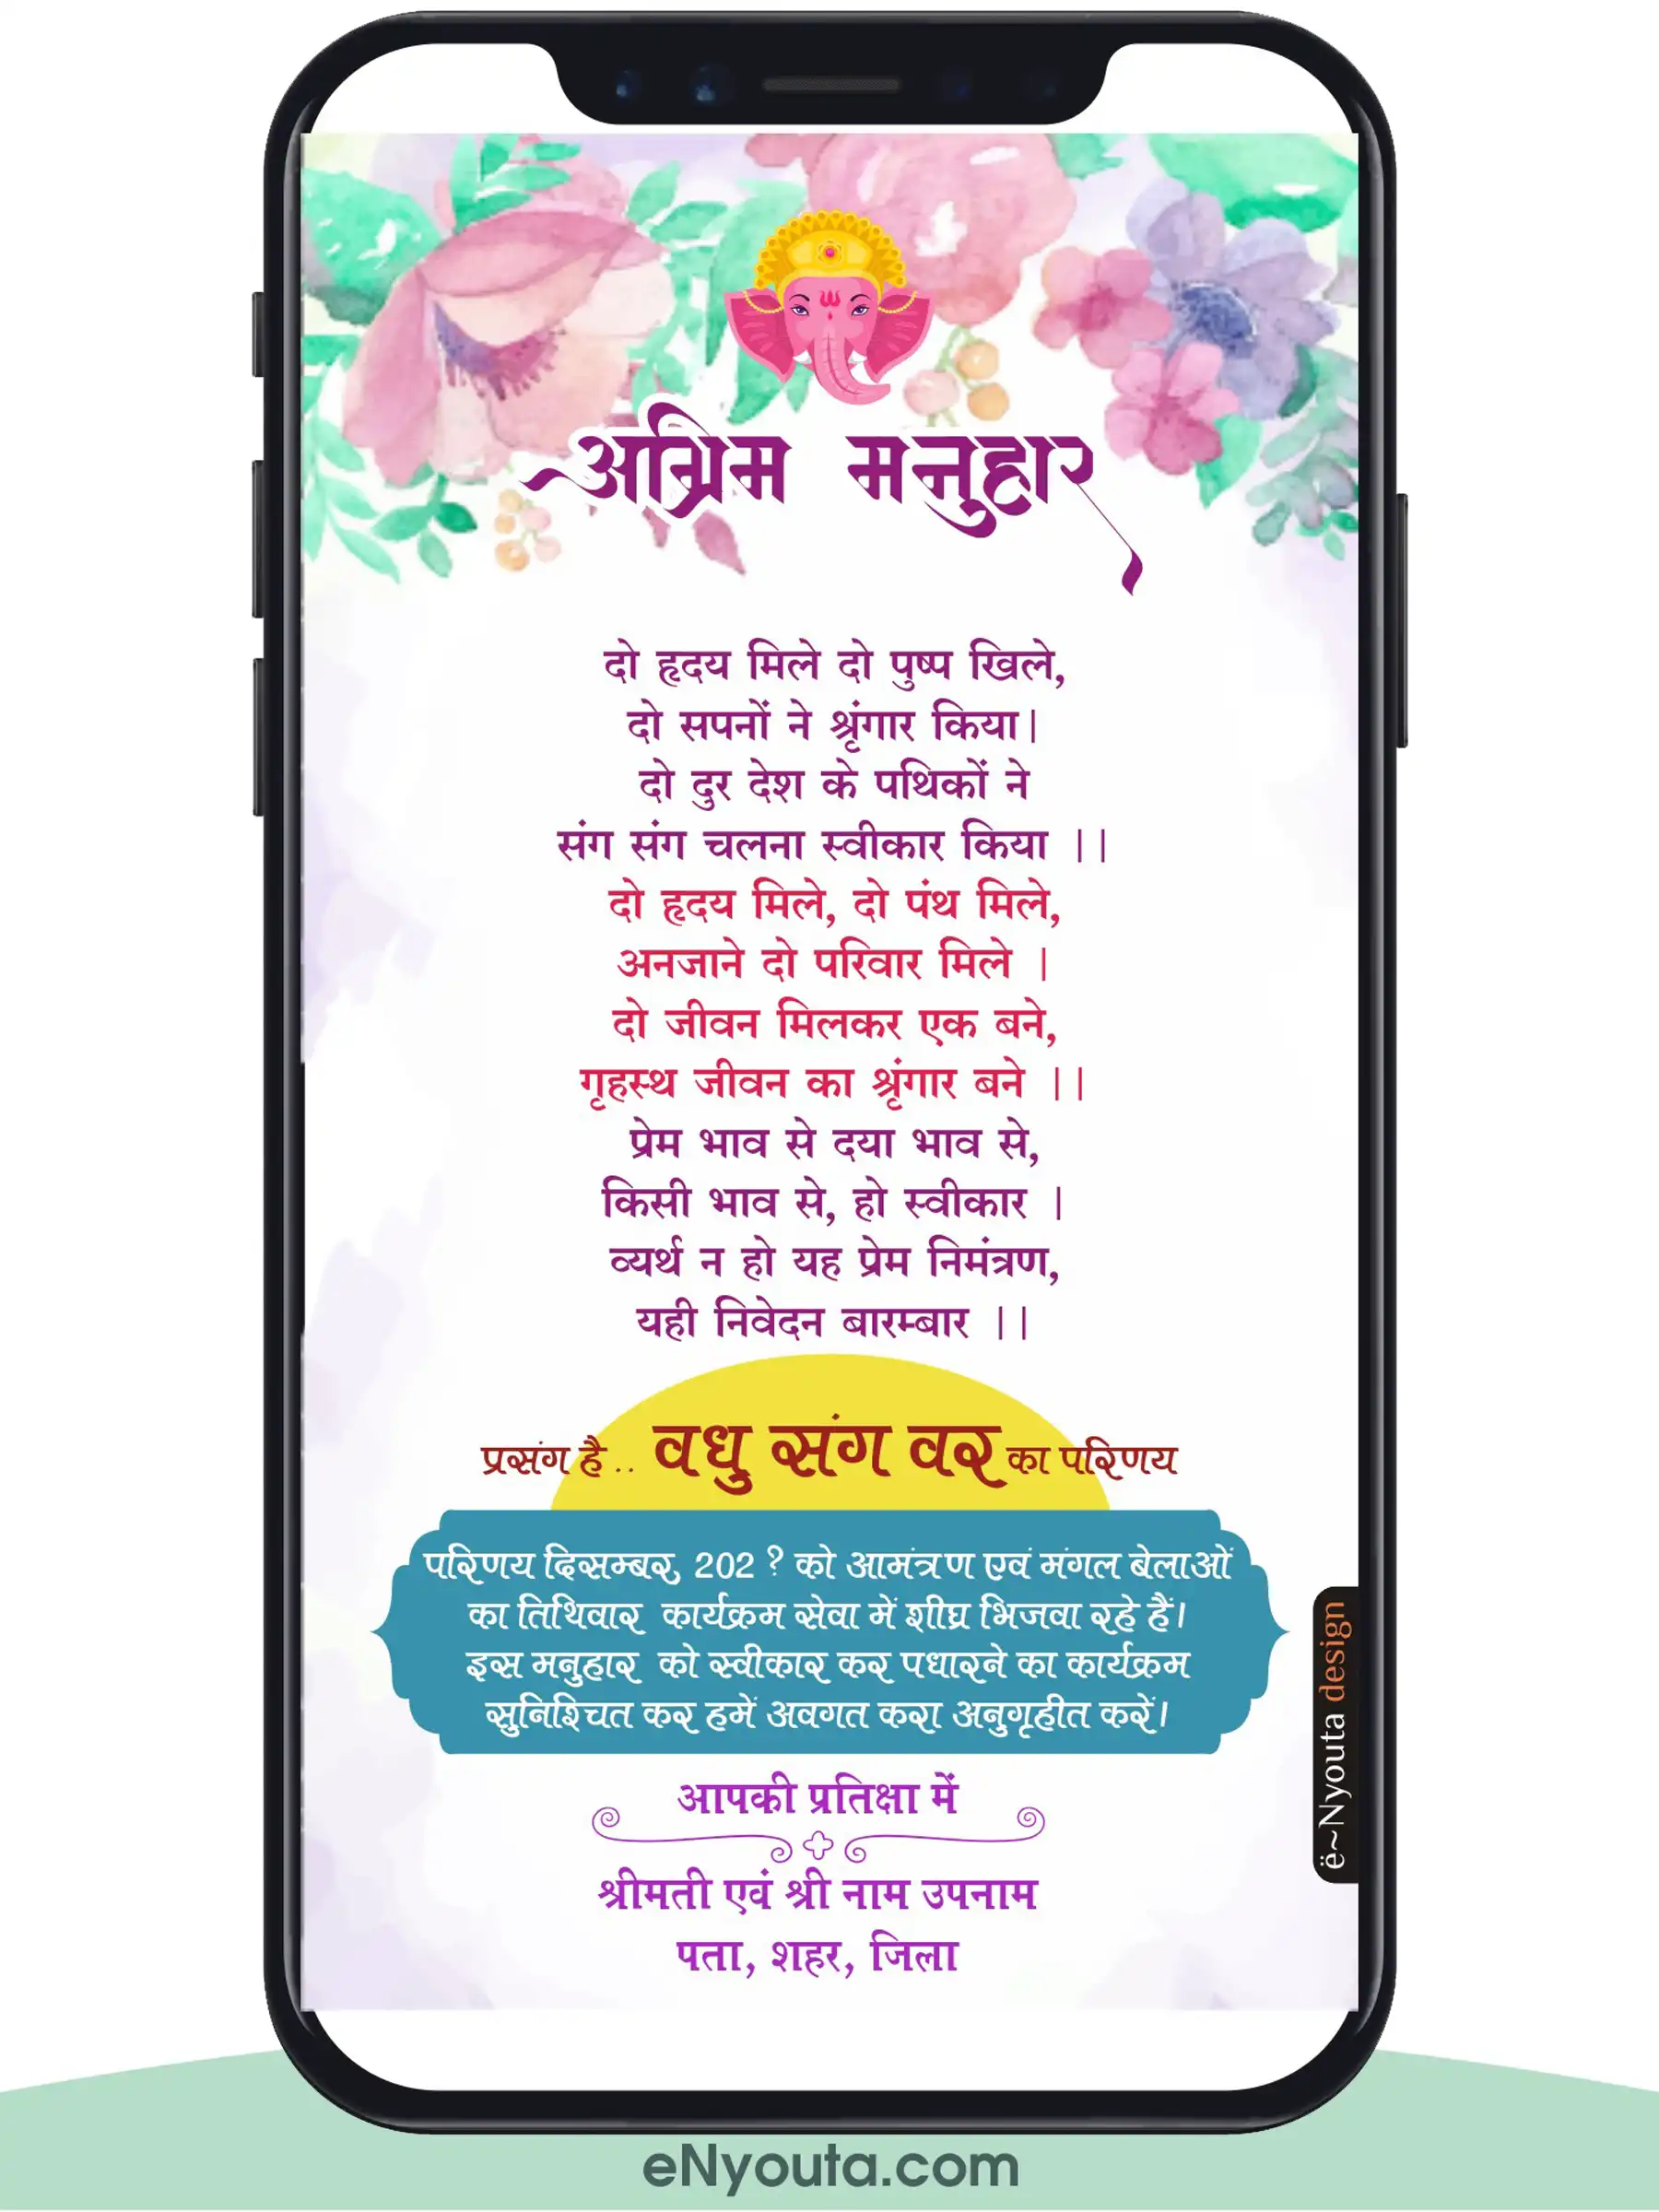 अग्रिम मनुहार
दो हृदय मिले दो पुष्प खिले,
दो सपनों ने श्रृंगार किया|
दो दुर देश के पथिकों ने
संग संग चलना स्वीकार किया ||
दो हृदय मिले, दो पंथ मिले,
अनजाने दो परिवार मिले |
दो जीवन मिलकर एक बने,
गृहस्थ जीवन का श्रृंगार बने ||
प्रेम भाव से दया भाव से,
किसी भाव से, हो स्वीकार |
व्यर्थ न हो यह प्रेम निमंत्रण,
यही निवेदन बारम्बार ||
प्रसंग है .. वधु संग वर का परिणय
परिणय दिसम्बर, 202 ? को आमंत्रण एवं मंगल बेलाओं
का तिथिवार कार्यक्रम सेवा में शीघ्र भिजवा रहे हैं।
इस मनुहार को स्वीकार कर पधारने का कार्यक्रम
सुनिश्चित कर हमें अवगत करा अनुगृहीत करें।
आपकी प्रतिक्षा में
श्रीमती एवं श्री नाम उपनाम
पता, शहर, जिला
ë~Nyouta design
eNyouta.com